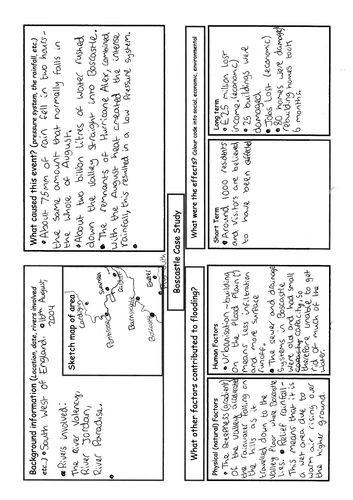 Boscastle Case Study
Background information (Location, date, rivers involved
etc.)
• South West of England. • 16th August
2004
• Rivers involved:
The river Valency,
River Jordan,
River Paradise.
Sketch map of area
What caused this event? (pressure system, the rainfall, etc.)
• About 75mm of rain fell in two hours-
the same amount that normally falls in
the whole of August.
• About two billion litres of water rushed
down the valley straight into Boscastle.
• The remnants of Hurricane Alex, combined
with the August heat created the intense
rainfall, this resulted in a low pressure system.
What other factors contributed to flooding?
Physical (natural) Factors
• The steepness (gradient)
of the valley allowed
the rainwater falling on
the hills as it
travelled down to the
valley floor where Boscastle
was. • Relief rainfall-
This means that it is
a wet area due to
warm air rising over
the higher ground.
Human Factors
• Urbanisation - building
on the Flood Plain (!)
means less infiltration
and more surface
runoff.
• The sewer and drainage
systems in Boscastle
were old and had small
capacity so
therefore unable to get
rid of much of the
water.
What were the effects? Colour code into social, economic, environmental
Short Term
• Around 1000 residents
and visitors are believed
to have been affected
Long term
• £2.5 million lost
income. (economic)
• 25 buildings were
damaged
• Jobs lost (economic)
• 80 homes were damaged
rebuilding homes took
6 months.